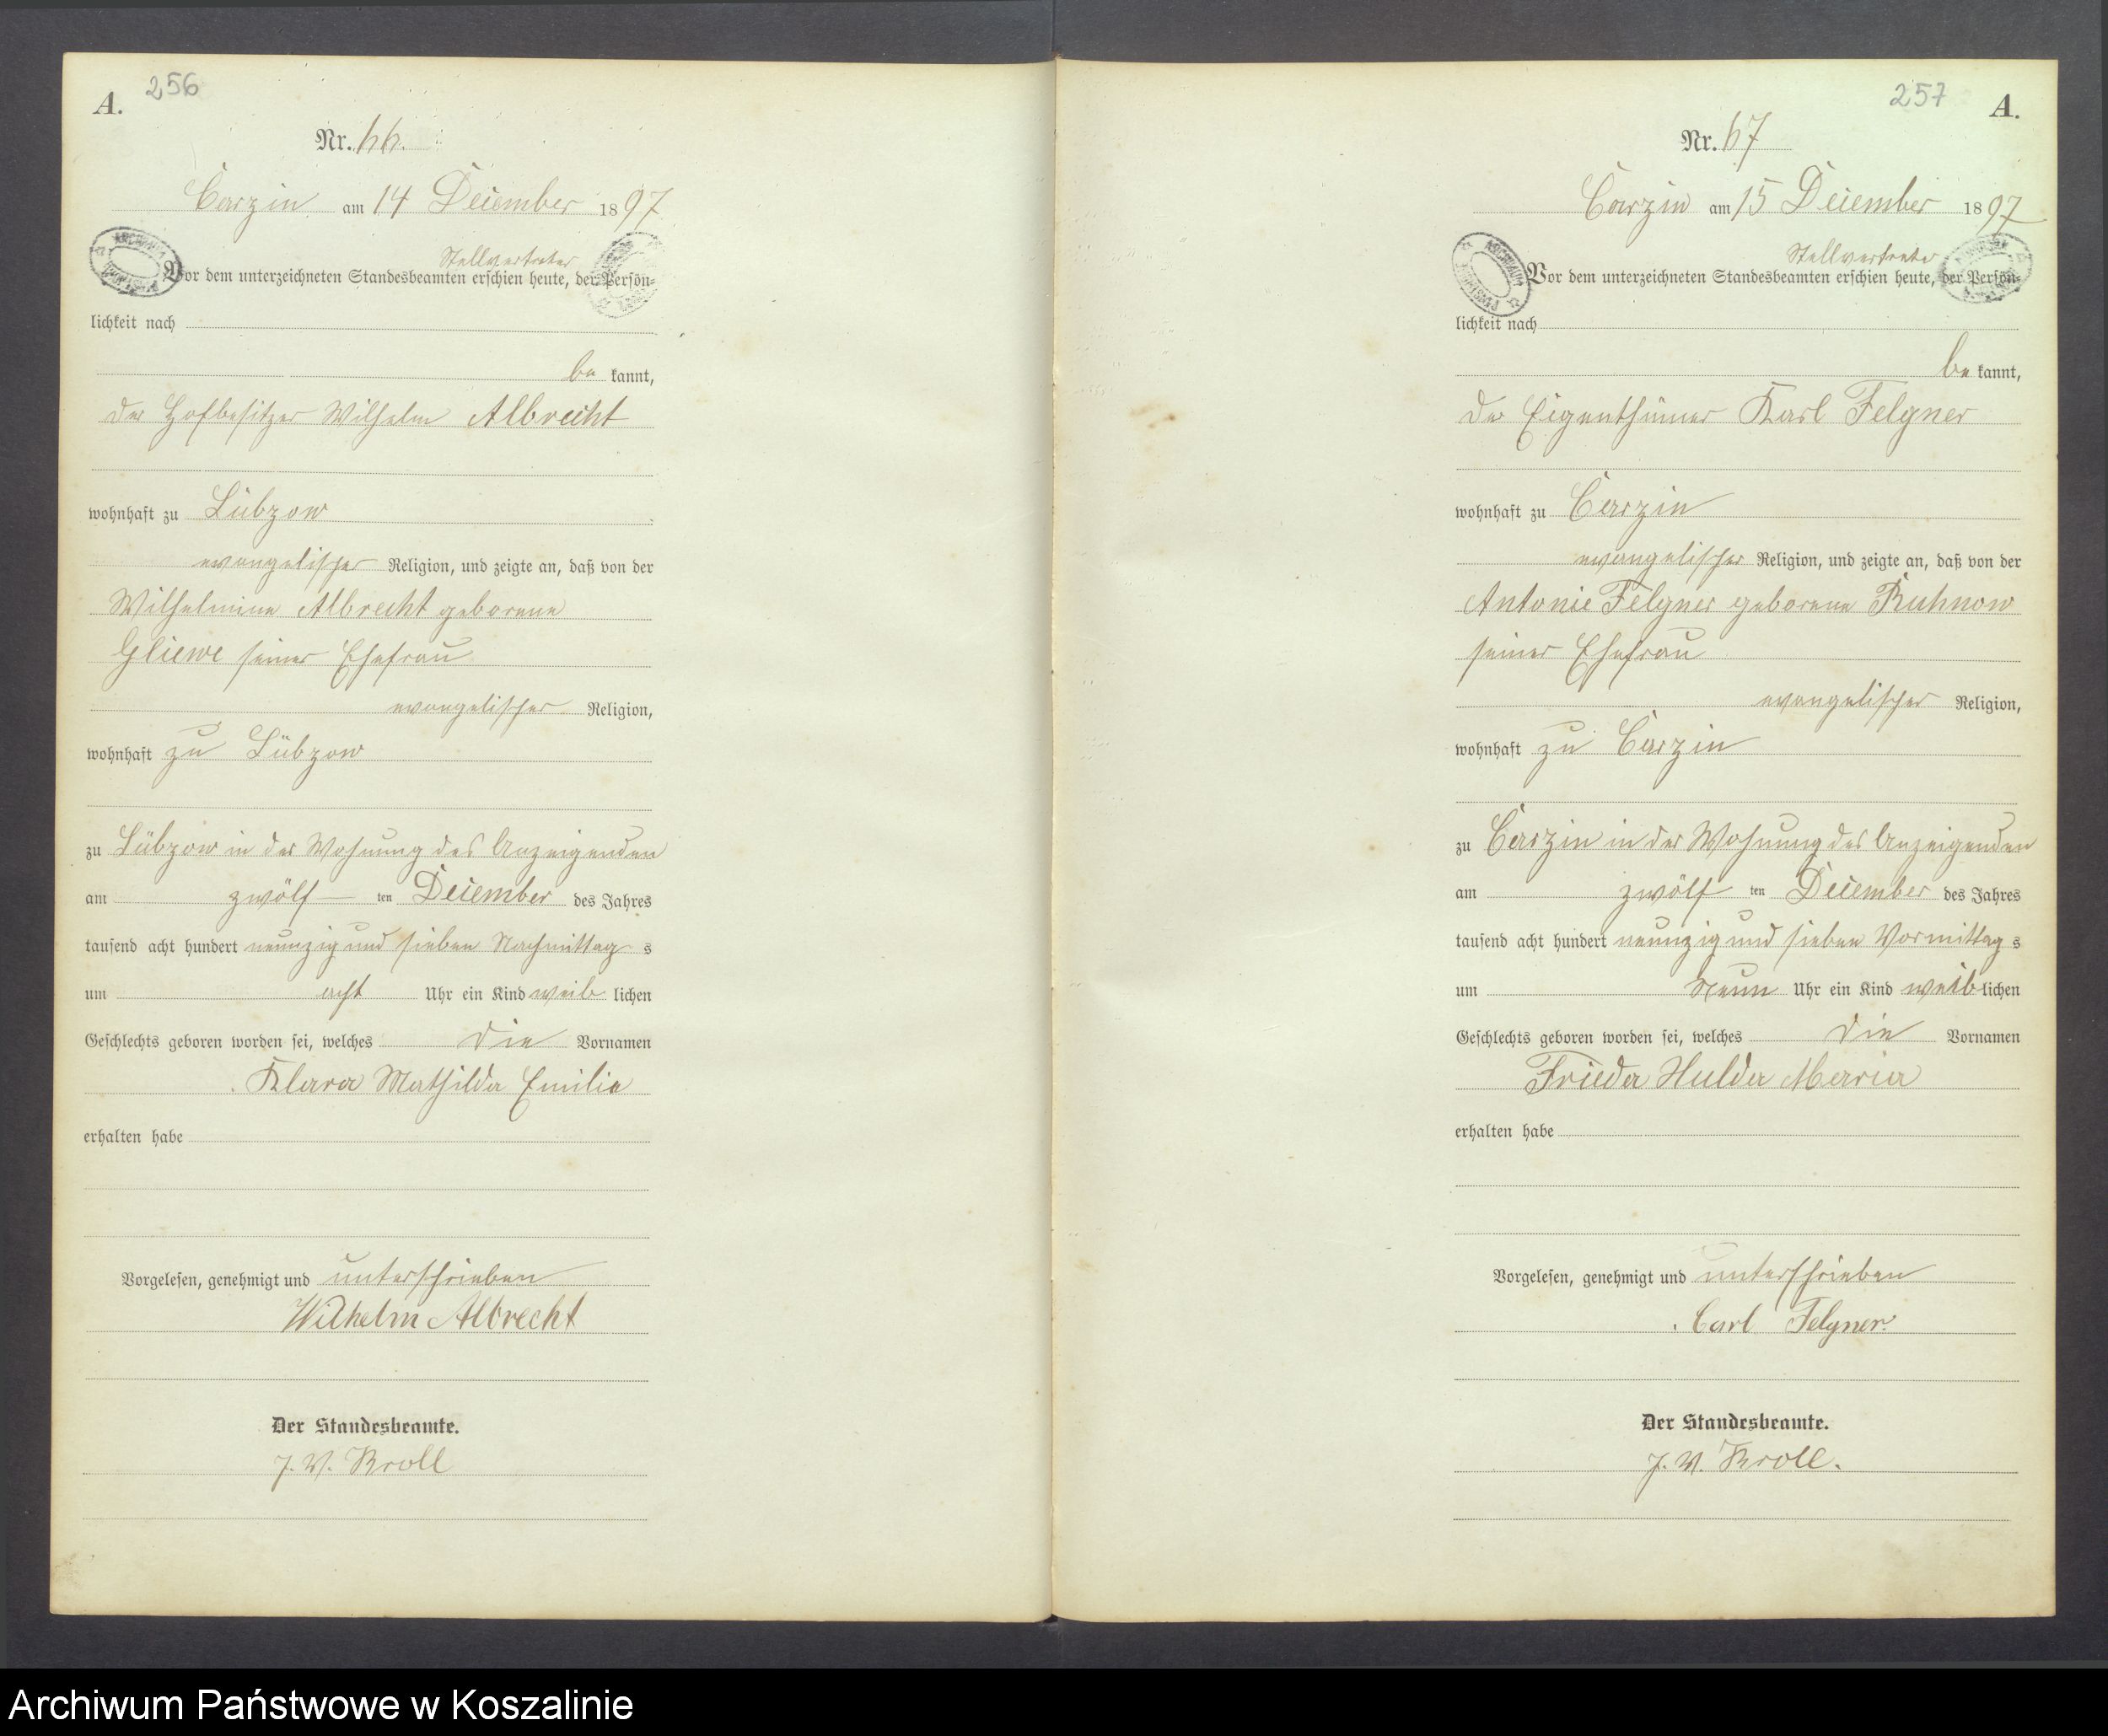 A.
256
Nr. 66.
Carzin am 14 December 1897
Stellvertreter
Vor dem unterzeichneten Standesbeamten erschien heute, der Persön-
lichkeit nach
be kannt,
der Hofbesitzer Wilhelm Albrecht
wohnhaft zu Lübzow
evangelischer Religion, und zeigte an, daß von der
Wilhelmine Albrecht geborene
Gliewe seiner Ehefrau
evangelischer Religion,
wohnhaft zu Lübzow
zu Lübzow in der Wohnung des Anzeigenden
am zwölf ten December des Jahres
tausend acht hundert neunzig und sieben Nachmittag s
um acht Uhr ein Kind weib lichen
Geschlechts geboren worden sei, welches die Vornamen
Klara Mathilde Emilie
erhalten habe
Vorgelesen, genehmigt und unterschrieben
Wilhelm Albrecht
Der Standesbeamte.
J. V. Kroll
257
A.
Nr. 67
Carzin am 15 December 1897
Stellvertreter
Vor dem unterzeichneten Standesbeamten erschien heute, der Persön-
lichkeit nach
be kannt,
der Eigenthümer Karl Felgner
wohnhaft zu Carzin
evangelischer Religion, und zeigte an, daß von der
Antonie Felgner geborene Ruhnow
seiner Ehefrau
evangelischer Religion,
wohnhaft zu Carzin
zu Carzin in der Wohnung des Anzeigenden
am zwölf ten December des Jahres
tausend acht hundert neunzig und sieben Vormittag s
um Neun Uhr ein Kind weib lichen
Geschlechts geboren worden sei, welches die Vornamen
Frieda Hulda Maria
erhalten habe
Vorgelesen, genehmigt und unterschrieben
Carl Felgner.
Der Standesbeamte.
J. V. Kroll.
Archiwum Państwowe w Koszalinie